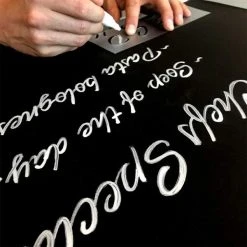 Chefs Special
- Soep of the day
- Pasta bolognes